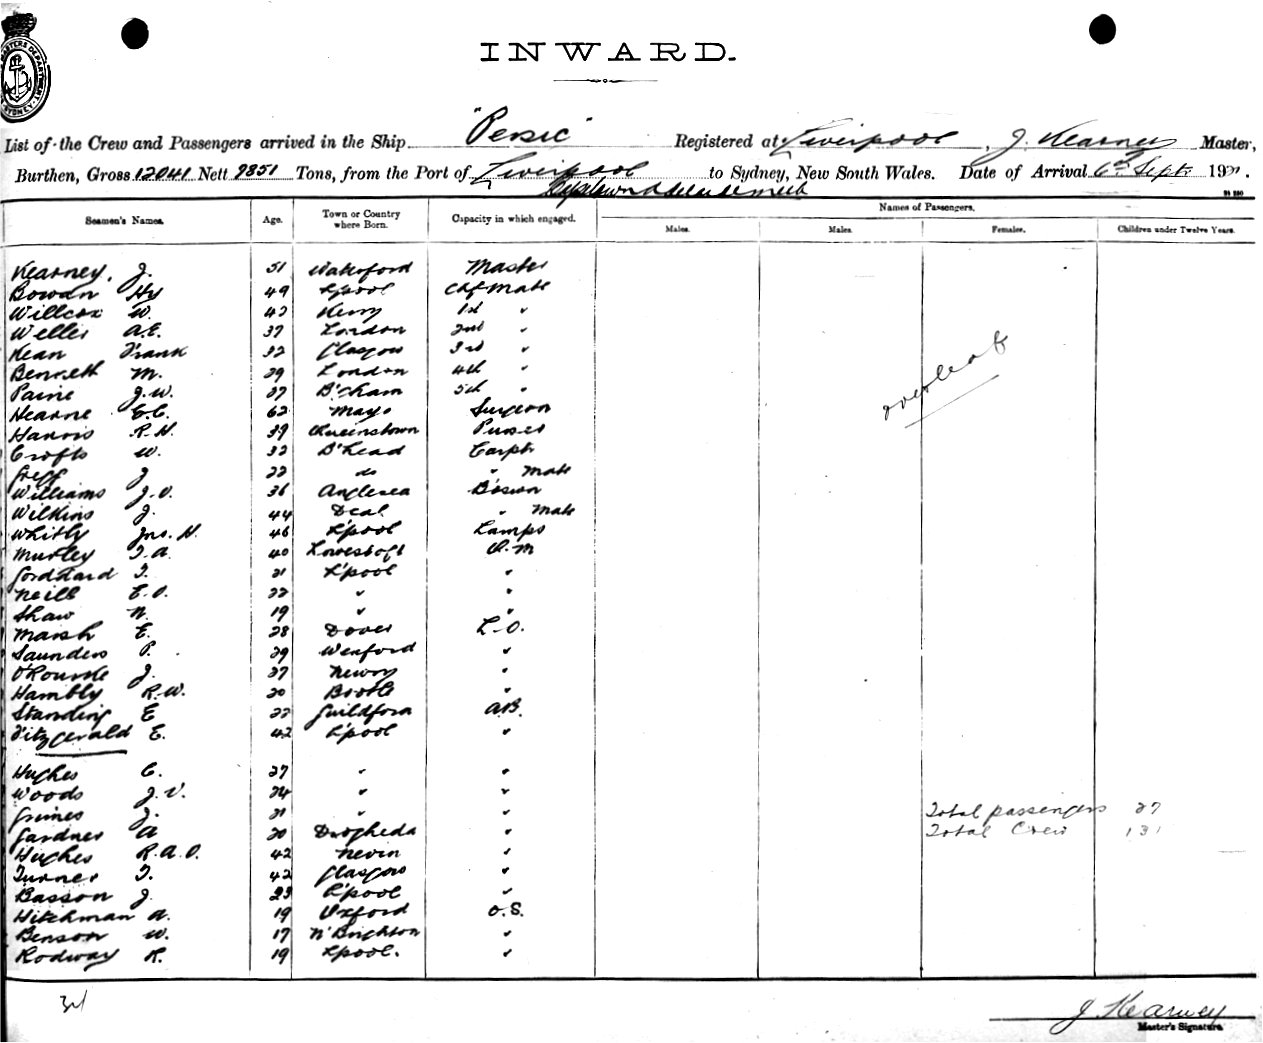 INWARD.
List of the Crew and Passengers arrived in the Ship "Persic" Registered at Liverpool, J. Kearney Master,
Burthen, Gross 12041 Nett 9851 Tons, from the Port of Liverpool to Sydney, New South Wales. Date of Arrival 6th Sept 19
Seamen's Names. Age. Town or Country where Born. Capacity in which engaged. Names of Passengers.
Males. Males. Females. Children under Twelve Years.
Kearney, J. 51 Waterford Master
Bowan Hy 49 L'pool Chf Mate
Willcox W. 42 Kerry 1st "
Welles A.E. 37 London 2nd "
Kean Frank 32 Glasgow 3rd "
Bennett M. 29 London 4th "
Paine J.W. 27 B'ham 5th "
Hearne E.C. 62 Mayo Surgeon
Harris R.H. 39 Queenstown Purser
Crofts W. 32 B'head Carptr
Greff J 22 do " Mate
Williams J.O. 36 Anglesea Bosun
Wilkins J. 44 Deal " Mate
Whitly Jno. H. 46 L'pool Lamps
Murley T.A. 40 Lowestoft Q.M
Gorddard T. 21 L'pool "
Neill E.O. 22 " "
Shaw N. 19 " "
Marsh E. 28 Dover L.O.
Saunders P. 29 Wexford "
O'Rourke J. 27 Newry "
Hambly R.W. 20 Bootle "
Standing E 22 Guildford A.B.
Fitzgerald E. 42 L'pool "
Hughes C. 27 " "
Woods J.V. 24 " "
Grimes J. 21 " "
Gardner A 20 Drogheda "
Hughes R.A.O. 42 Nevin "
Turner T. 42 Glasgow "
Basson J. 23 L'pool "
Hitchman A. 19 Oxford O.S.
Benson W. 17 N'Brighton "
Rodway R. 19 L'pool. "
overleaf
Total passengers 27
Total Crew 131
34
J. Kearney
Master's Signature